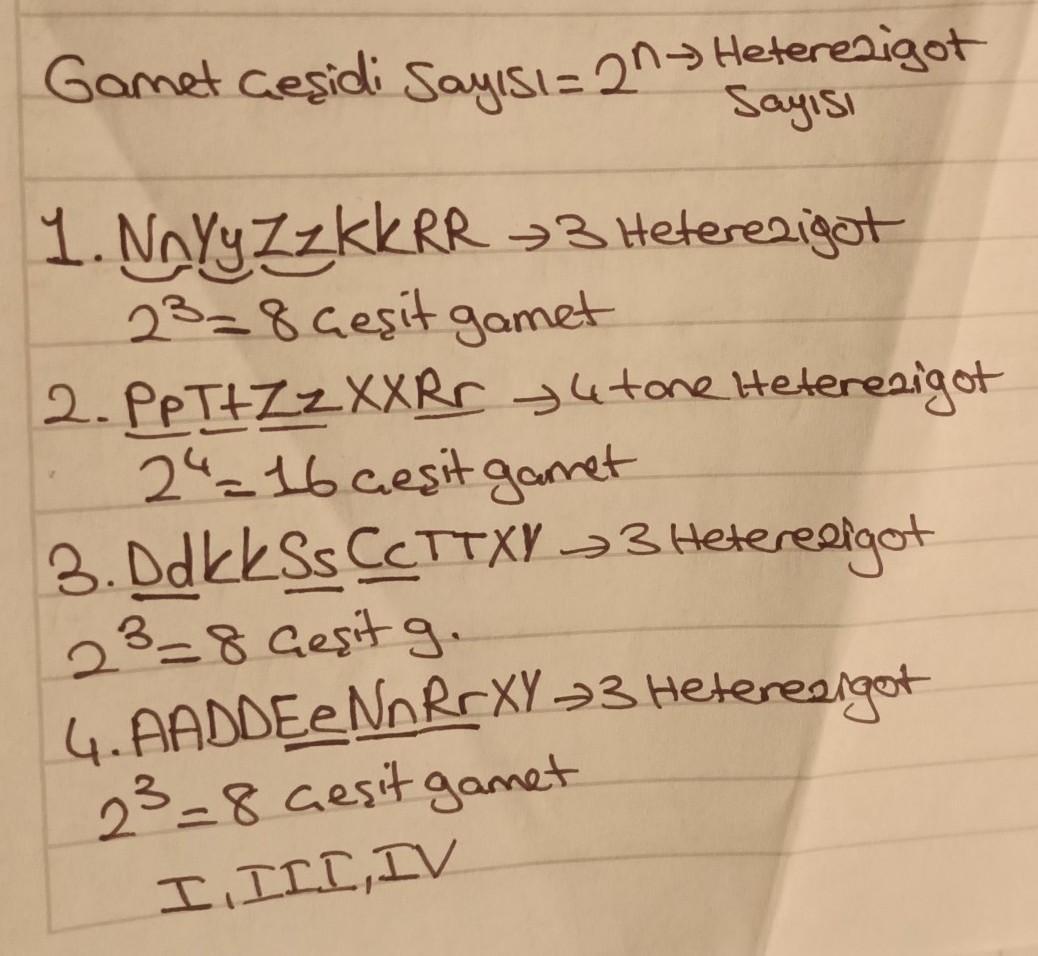 Gamet Çeşidi Sayısı = 2ⁿ → Heterezigot
Sayısı
1. NnYyZzkkRR → 3 Heterezigot
2³ = 8 Çeşit gamet
2. PpTtZzXXRr → 4 tane Heterezigot
2⁴ = 16 Çeşit gamet
3. DdkkSsCcTTXY → 3 Heterezigot
2³ = 8 Çeşit g.
4. AADDEeNnRrXY → 3 Heterezigot
2³ = 8 Çeşit gamet
I, III, IV